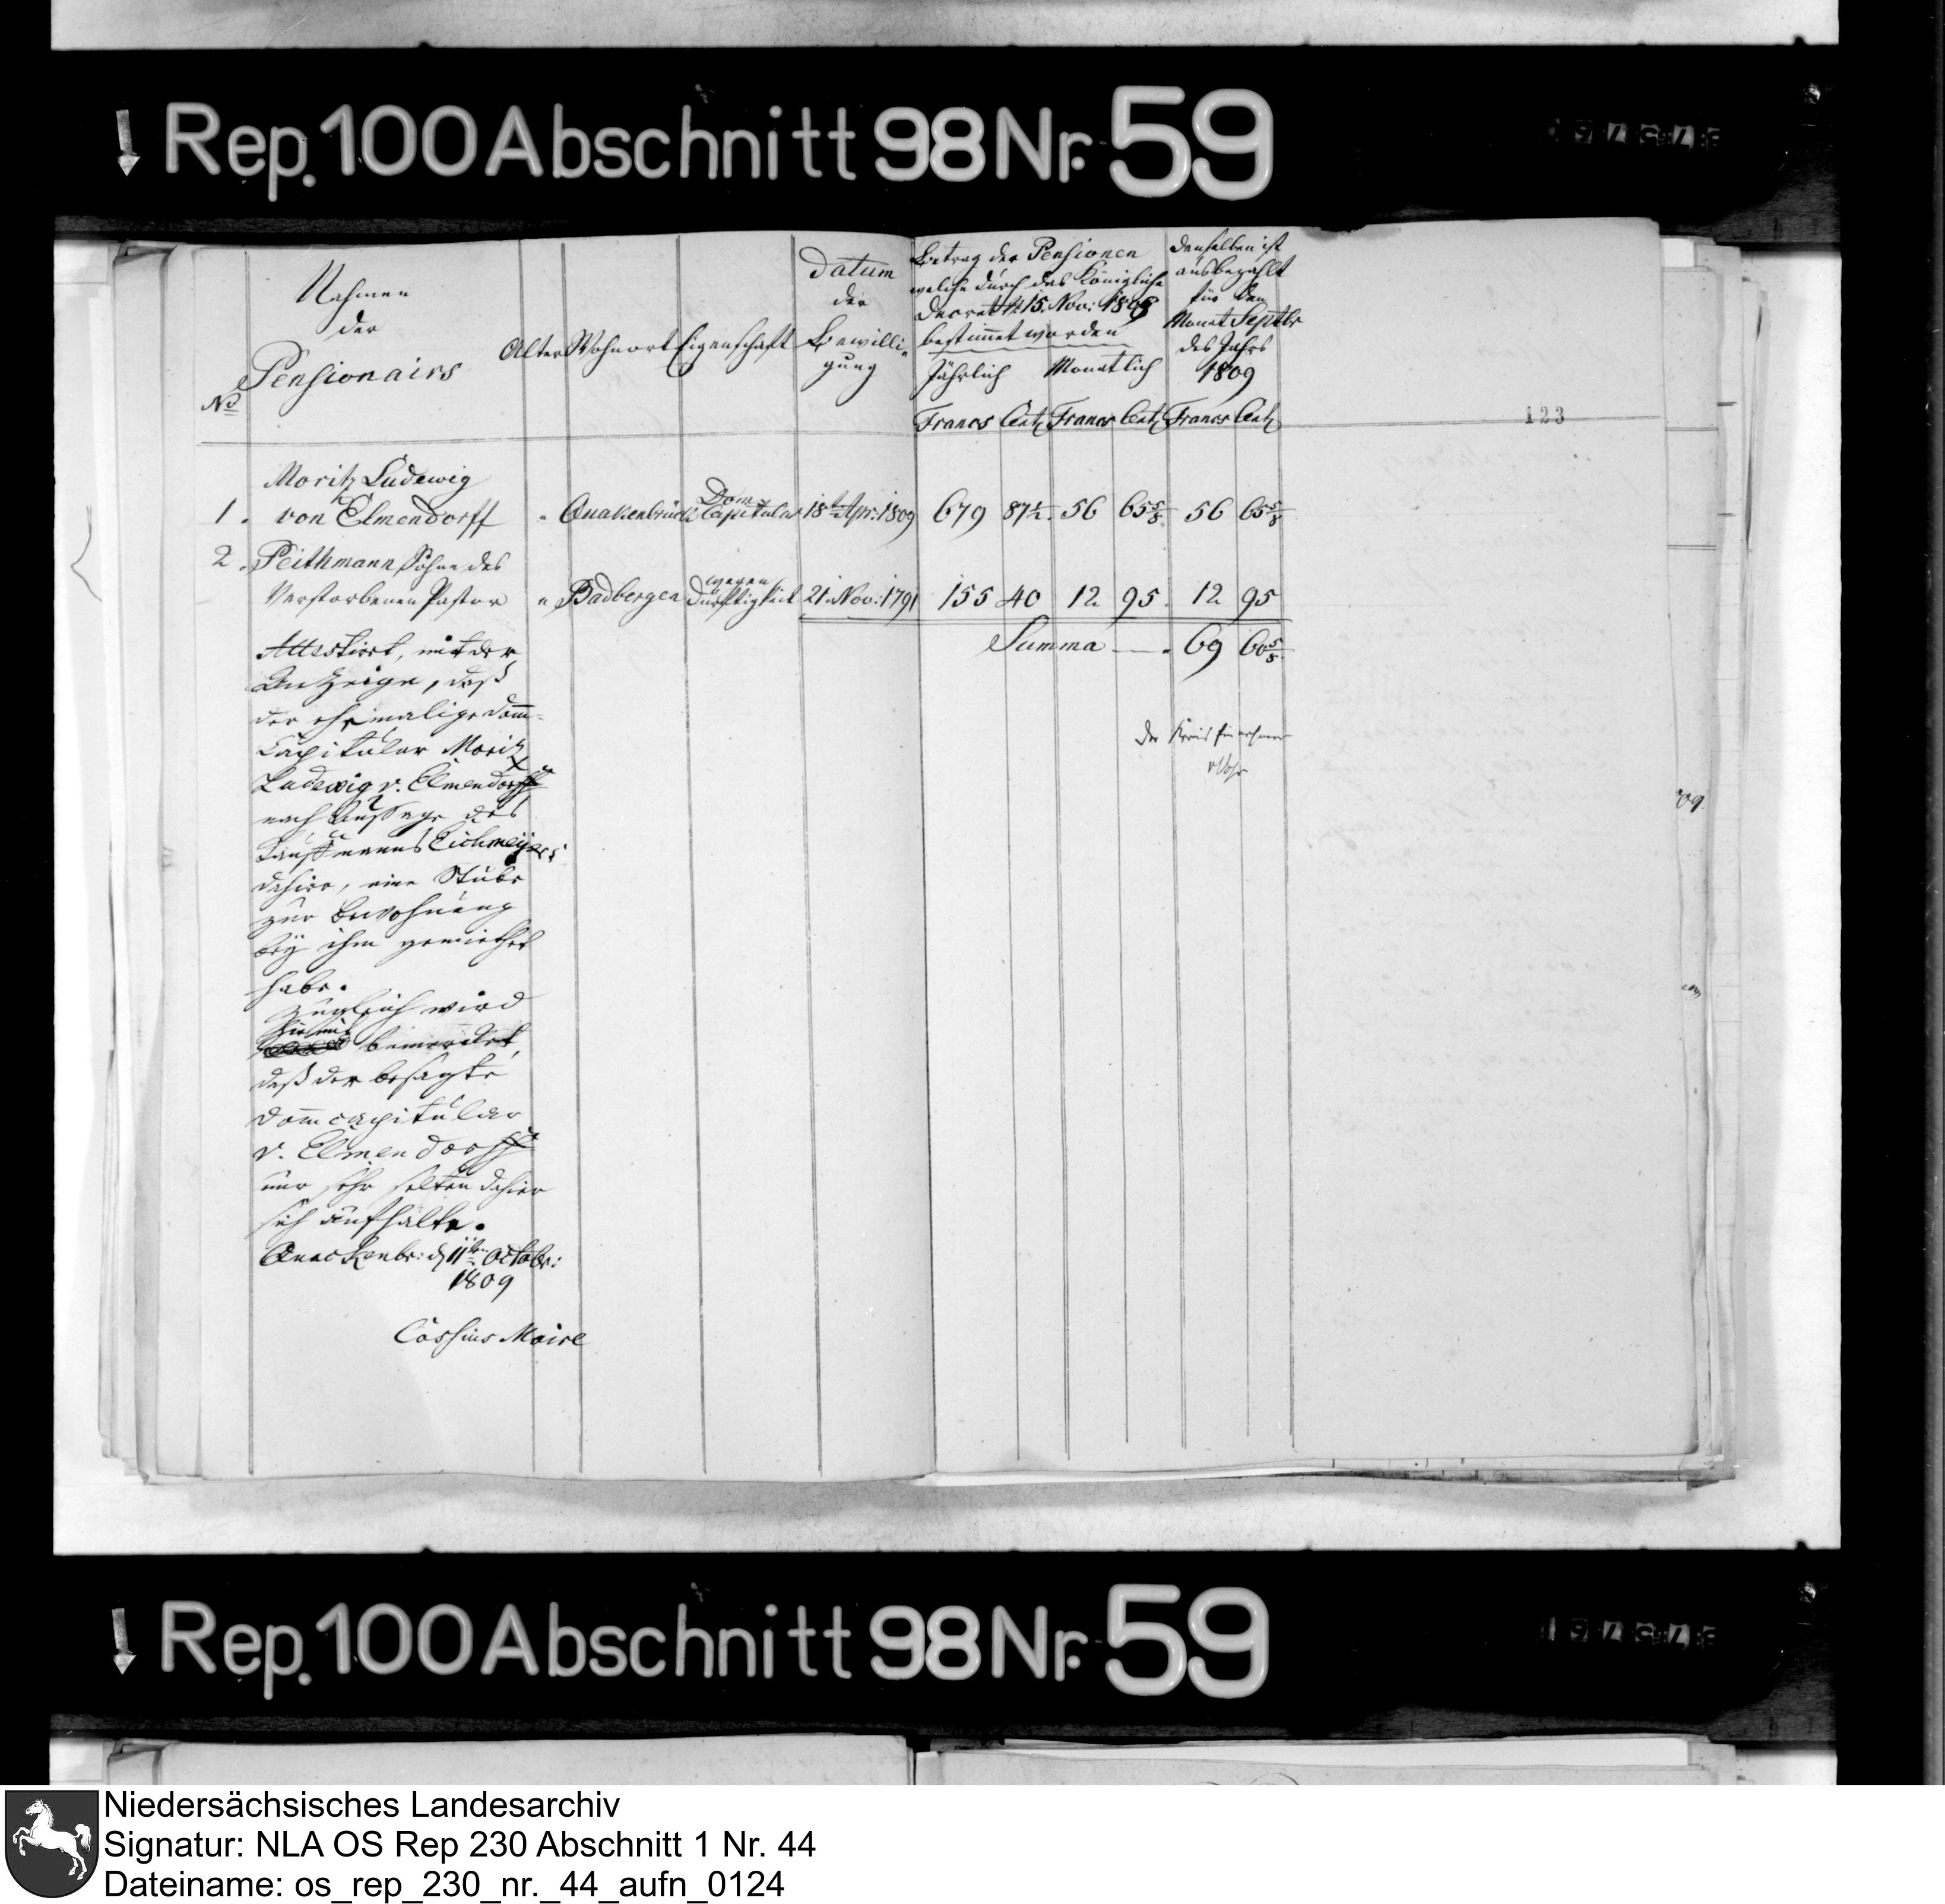 Rep. 100 Abschnitt 98 Nr. 59
Nahmen
der
Pensionairs
No
Alter
Wohnort
Eigenschaft
Datum
der
Bewilli-
gung
Betrag der Pensionen
welche durch das Königliche
Decret 15. Nov:
bestimmt worden
Jährlich
Monatlich
Denselben ist
ausbezahlt
für den
Monat Septbr
des Jahrs
1809
Francs Cent Francs Cent Francs Cent
123
Moritz Ludewig
1. von Elmendorff " Quakenbrück Dom Capitular 18t Apr: 1809 679 87½ 56 65⅝ 56 65⅝
2. Peithmann Söhne des
Verstorbenen Pastor " Badbergen wegen Dürftigkeit 21. Nov: 1791 155 40 12 95 12 95
Summa 69 60⅝
Der Kreis Einnehmer
Attestirt, mit der
Anzeige, daß
der ehemalige Dom-
Capitular Moritz
Ludewig v. Elmendorff
nach Aussage des
Kaufmanns Eickmeyer
dahier, eine Stube
zur Bewohnung
bey ihm gemiethet
habe.
Zugleich wird
hiemit bemerket,
daß der besagte
Domcapitular
v. Elmendorff
nur sehr selten dahier
sich aufhalte.
Quackenbr: d 11ten Octobr:
1809
Maire
09
Rep. 100 Abschnitt 98 Nr. 59
Niedersächsisches Landesarchiv
Signatur: NLA OS Rep 230 Abschnitt 1 Nr. 44
Dateiname: os_rep_230_nr._44_aufn_0124